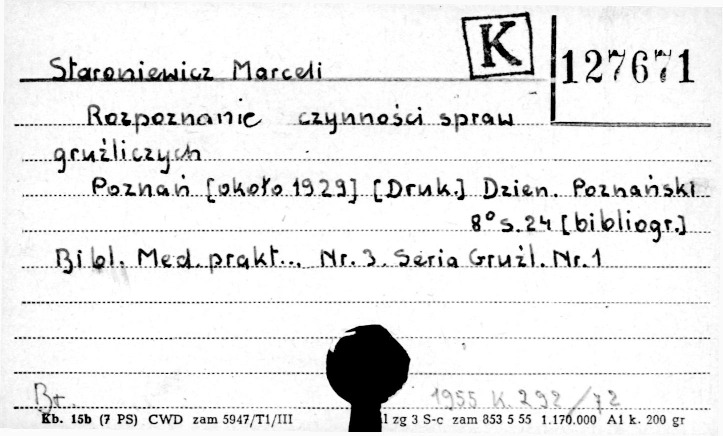 K
127671
Staroniewicz Marceli
Rozpoznanie czynności spraw
gruźliczych
Poznań [około 1929] [Druk.] Dzien. Poznański
8° s. 24 [bibliogr.]
Bibl. Med. prakt... Nr. 3. Seria Gruźl. Nr. 1
Bt. 1955 K. 292/72
Kb. 15b (7 PS) CWD zam 5947/T1/III zg 3 S-c zam 853 5 55 1.170.000 A1 k. 200 gr